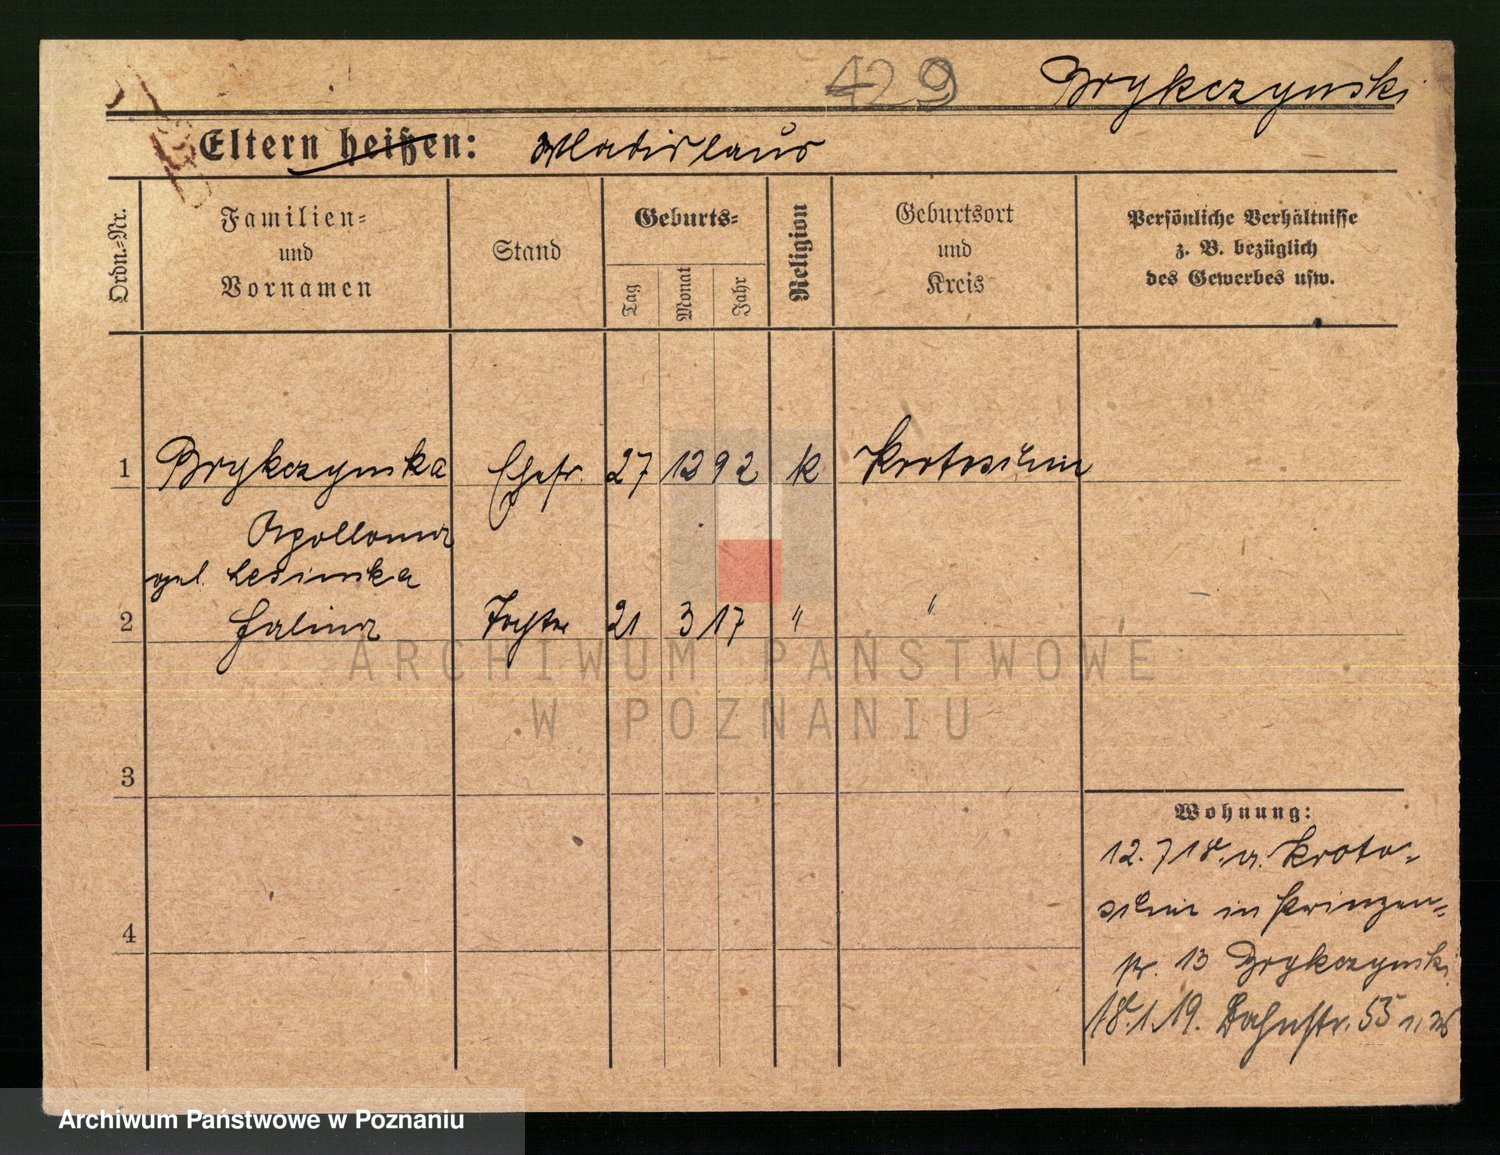 429 Brykczynski
Eltern heißen: Wladislaus
Ordn.-Nr.
Familien-
und
Vornamen
Stand
Geburts-
Tag
Monat
Jahr
Religion
Geburtsort
und
Kreis
Persönliche Verhältnisse
z. B. bezüglich
des Gewerbes usw.
1 Brykczynska Ehefr. 27 12 92 k Krotoschin
Apollonia
geb. Lesinska
2 Halina Tochter 21 3 17 " "
ARCHIWUM PAŃSTWOWE
W POZNANIU
3
4
Wohnung:
12.7 18. a. Kroto-
schin in Prinzen-
str. 13 Brykczynski
18.1.19. Bahnstr. 55
Archiwum Państwowe w Poznaniu